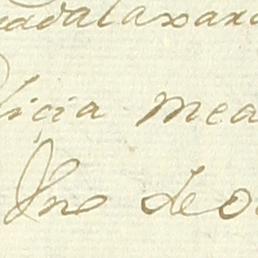 uadalaxara
licia Mea
Jno Leo